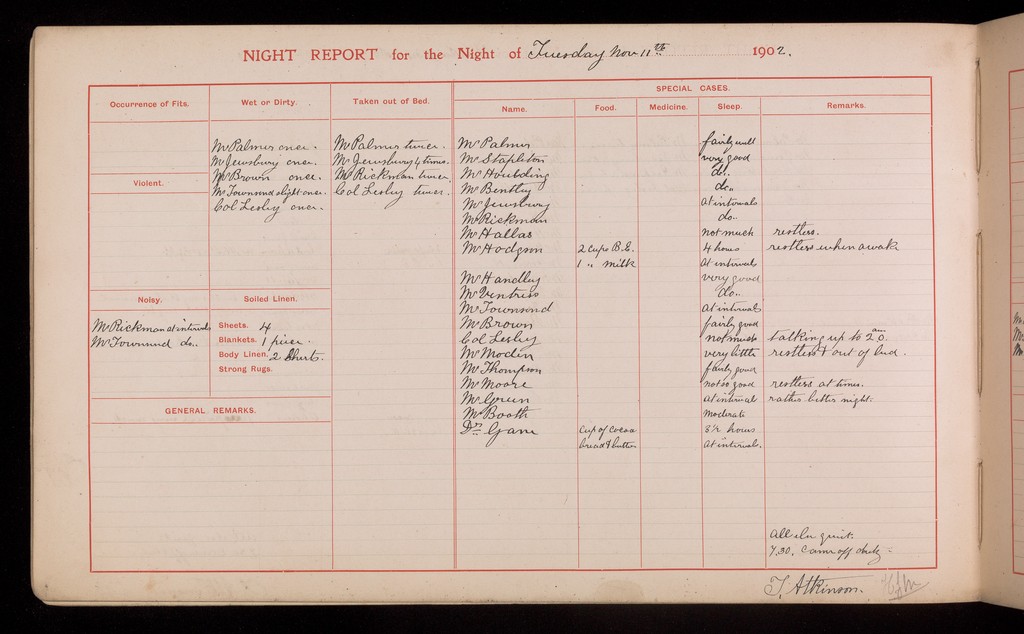 NIGHT REPORT for the Night of Tuesday Nov 11th 1902.
Occurrence of Fits.
Violent.
Noisy.
Mr Rickman at intervals
Mr Townsend do..
Wet or Dirty.
Mr Palmer once.
Mr Jewsbury once.
Mr Brown once.
Mr Townsend slight once.
Col Lesley once.
Soiled Linen.
Sheets. 4
Blankets. 1 piece.
Body Linen. 2 Shirts.
Strong Rugs.
GENERAL REMARKS.
Taken out of Bed.
Mr Palmer twice.
Mr Jewsbury 4 times.
Mr Rickman twice.
Col Lesley twice.
SPECIAL CASES.
Name. Food. Medicine. Sleep. Remarks.
Mr Palmer fairly well
Mr Stapleton very good
Mr Houlding do..
Mr Bentley do..
Mr Jewsbury at intervals
Mr Rickman do..
Mr Hallas not much restless.
Mr Hodgson 2 cups B.T. 4 hours restless when awak
1 " milk at interval
Mr Handley very good
Mr Ventriss do..
Mr Townsend at intervals
Mr Brown fairly good
Col Lesley not much talking up to 2 am
Mr Modin very little restless & out of bed.
Mr Thompson fairly good
Mr Moore not so good restless at times.
Mr Green at interval rather better night.
Mr Booth moderate
Dr Gane cup of cocoa 3½ hours
bread & butter at intervals.
All else quiet.
7.30. Came off duty
T. Atkinson.